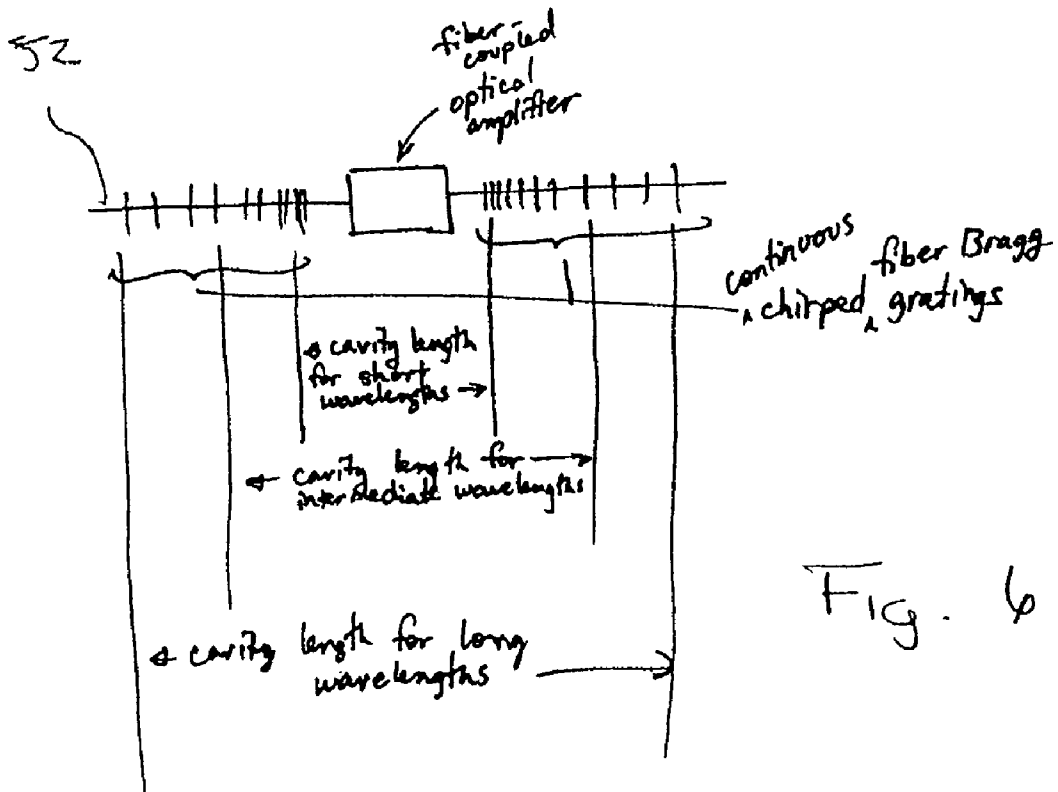 52
fiber-
coupled
optical
amplifier
continuous
chirped ^ fiber Bragg
^ gratings
cavity length
for short
wavelengths
cavity length for
intermediate wavelengths
cavity length for long
wavelengths
Fig. 6